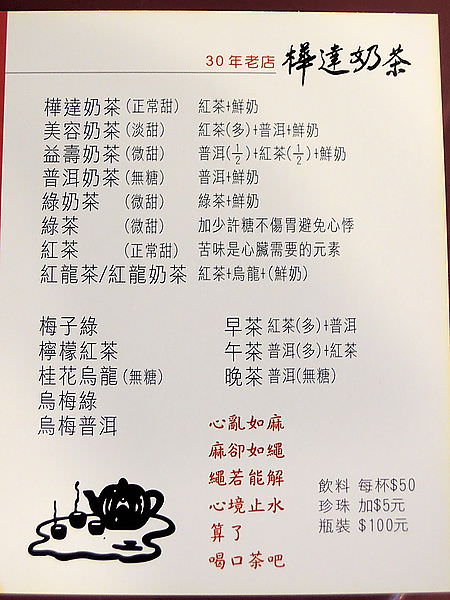 30年老店 樺達奶茶
樺達奶茶(正常甜) 紅茶+鮮奶
美容奶茶(淡甜) 紅茶(多)+普洱+鮮奶
益壽奶茶(微甜) 普洱(1/2)+紅茶(1/2)+鮮奶
普洱奶茶(無糖) 普洱+鮮奶
綠奶茶 (微甜) 綠茶+鮮奶
綠茶 (微甜) 加少許糖不傷胃避免心悸
紅茶 (正常甜) 苦味是心臟需要的元素
紅龍茶/紅龍奶茶 紅茶+烏龍+(鮮奶)
梅子綠
檸檬紅茶
桂花烏龍(無糖)
烏梅綠
烏梅普洱
早茶 紅茶(多)+普洱
午茶 普洱(多)+紅茶
晚茶 普洱(無糖)
心亂如麻
麻卻如繩
繩若能解
心境止水
算了
喝口茶吧
飲料 每杯$50
珍珠 加$5元
瓶裝 $100元